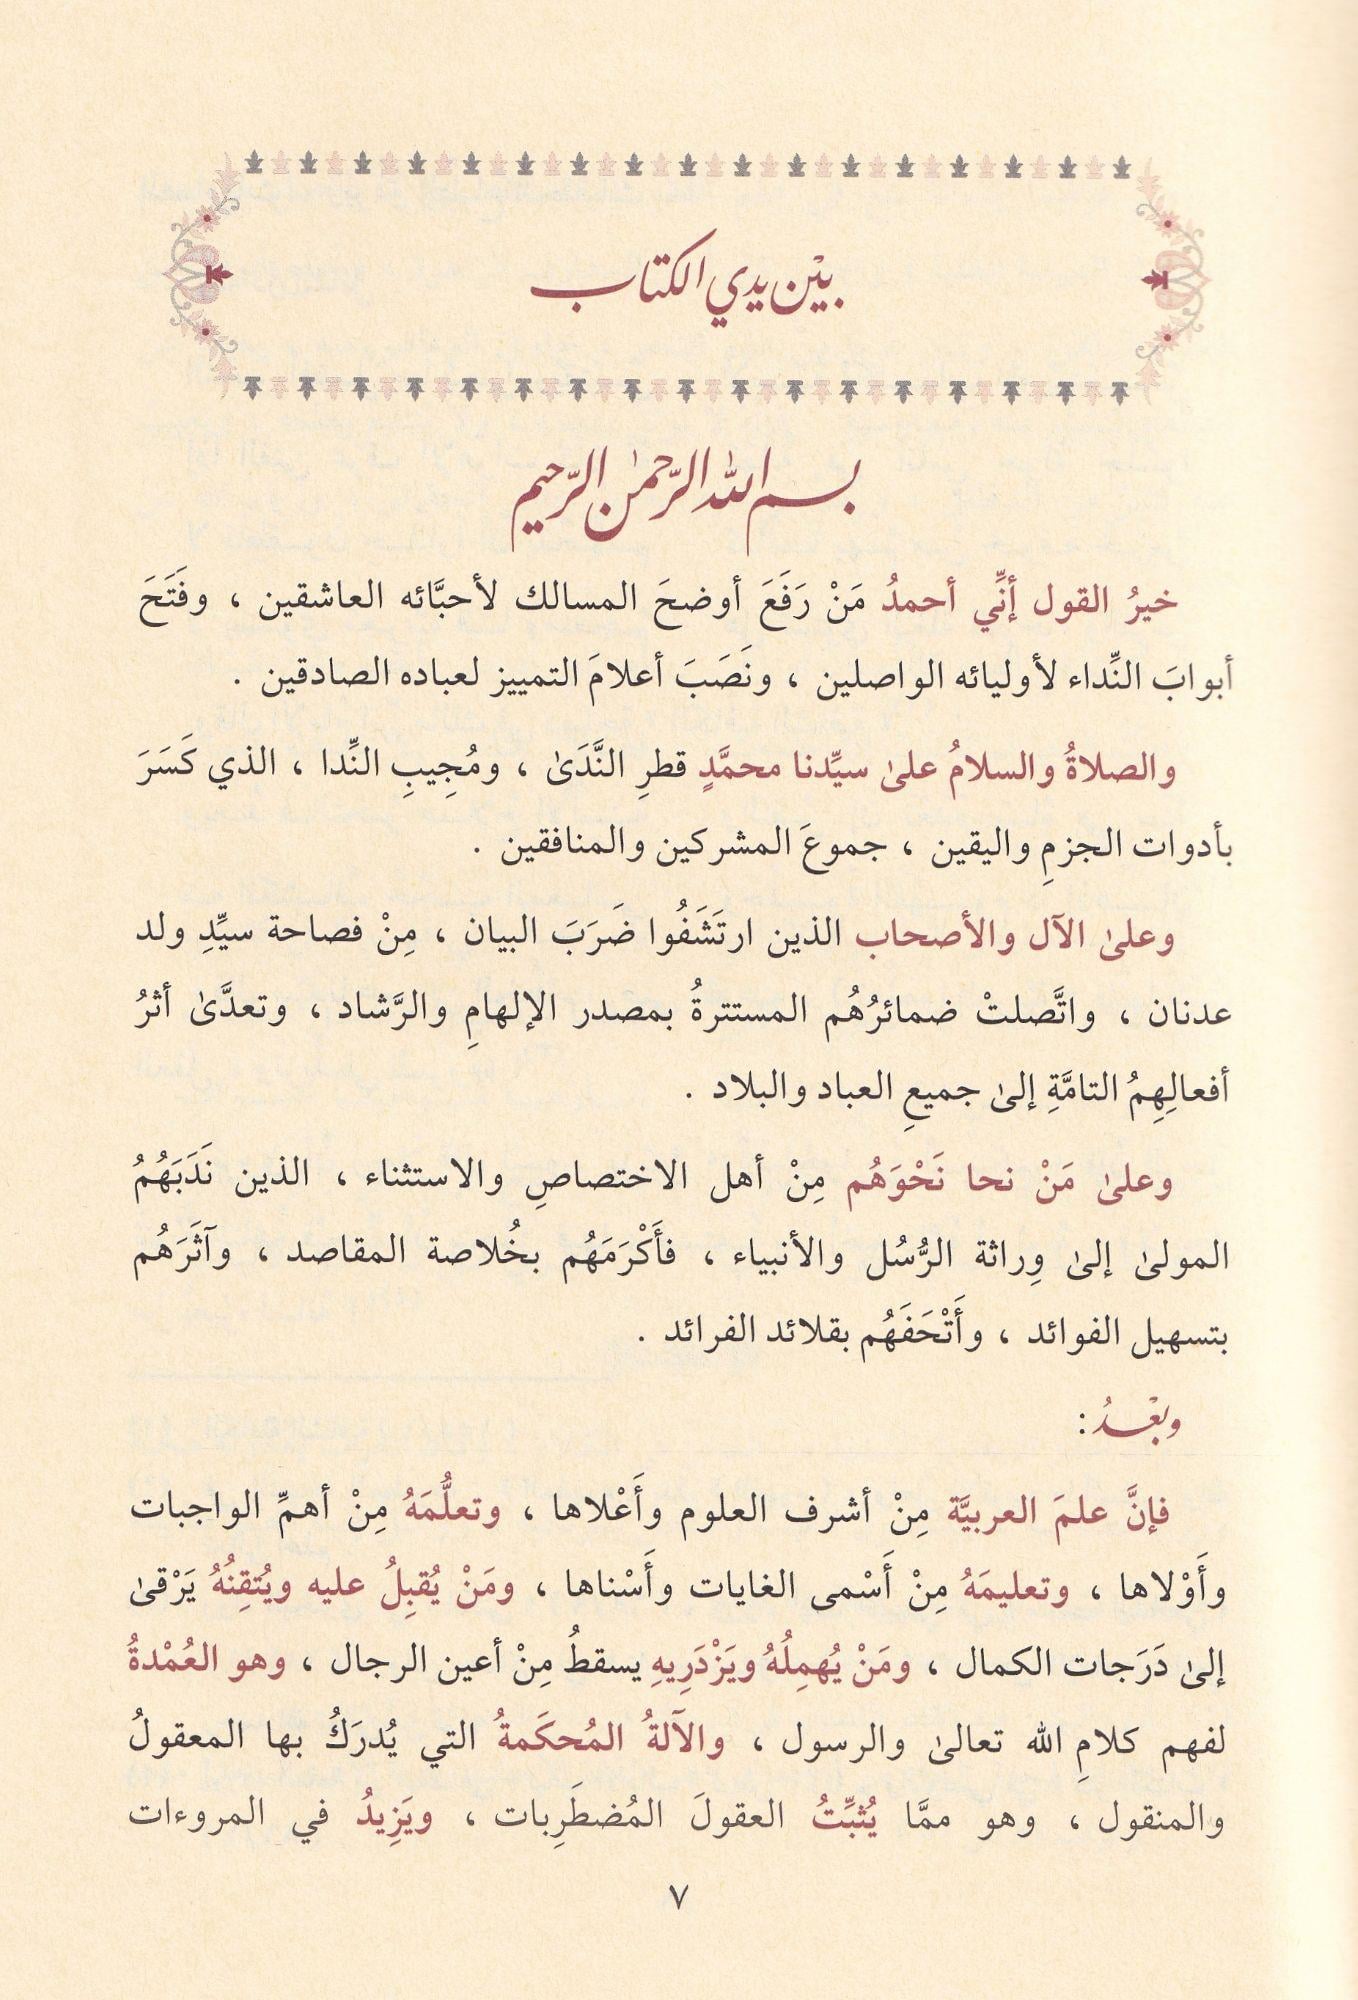 بين يدي الكتاب
بسم الله الرحمٰن الرحيم
خيرُ القول إنِّي أحمدُ مَنْ رَفَعَ أوضحَ المسالك لأحبَّائه العاشقين ، وفَتَحَ
أبوابَ النِّداء لأوليائه الواصلين ، ونَصَبَ أعلامَ التمييز لعباده الصادقين .
والصلاةُ والسلامُ علىٰ سيِّدنا محمَّدٍ قطرِ النَّدَىٰ ، ومُجِيبِ النِّدا ، الذي كَسَرَ
بأدوات الجزمِ واليقين ، جموعَ المشركين والمنافقين .
وعلىٰ الآل والأصحاب الذين ارتَشَفُوا ضَرَبَ البيان ، مِنْ فصاحة سيِّدِ ولد
عدنان ، واتَّصلتْ ضمائرُهُم المستترةُ بمصدر الإلهامِ والرَّشاد ، وتعدَّىٰ أثرُ
أفعالِهِمُ التامَّةِ إلىٰ جميعِ العباد والبلاد .
وعلىٰ مَنْ نحا نَحْوَهُم مِنْ أهل الاختصاصِ والاستثناء ، الذين نَدَبَهُمُ
المولىٰ إلىٰ وِراثة الرُّسُل والأنبياء ، فأَكْرَمَهُم بخُلاصة المقاصد ، وآثَرَهُم
بتسهيل الفوائد ، وأَتْحَفَهُم بقلائد الفرائد .
وبعْدُ :
فإنَّ علمَ العربيَّة مِنْ أشرف العلوم وأَعْلاها ، وتعلُّمَهُ مِنْ أهمِّ الواجبات
وأَوْلاها ، وتعليمَهُ مِنْ أَسْمى الغايات وأَسْناها ، ومَنْ يُقبِلُ عليه ويُتقِنُهُ يَرْقىٰ
إلىٰ دَرَجات الكمال ، ومَنْ يُهمِلُهُ ويَزْدَرِيهِ يسقطُ مِنْ أعين الرجال ، وهو العُمْدةُ
لفهم كلامِ الله تعالىٰ والرسول ، والآلةُ المُحكَمةُ التي يُدرَكُ بها المعقولُ
والمنقول ، وهو ممَّا يُثبِّتُ العقولَ المُضطَرِبات ، ويَزِيدُ في المروءات
٧